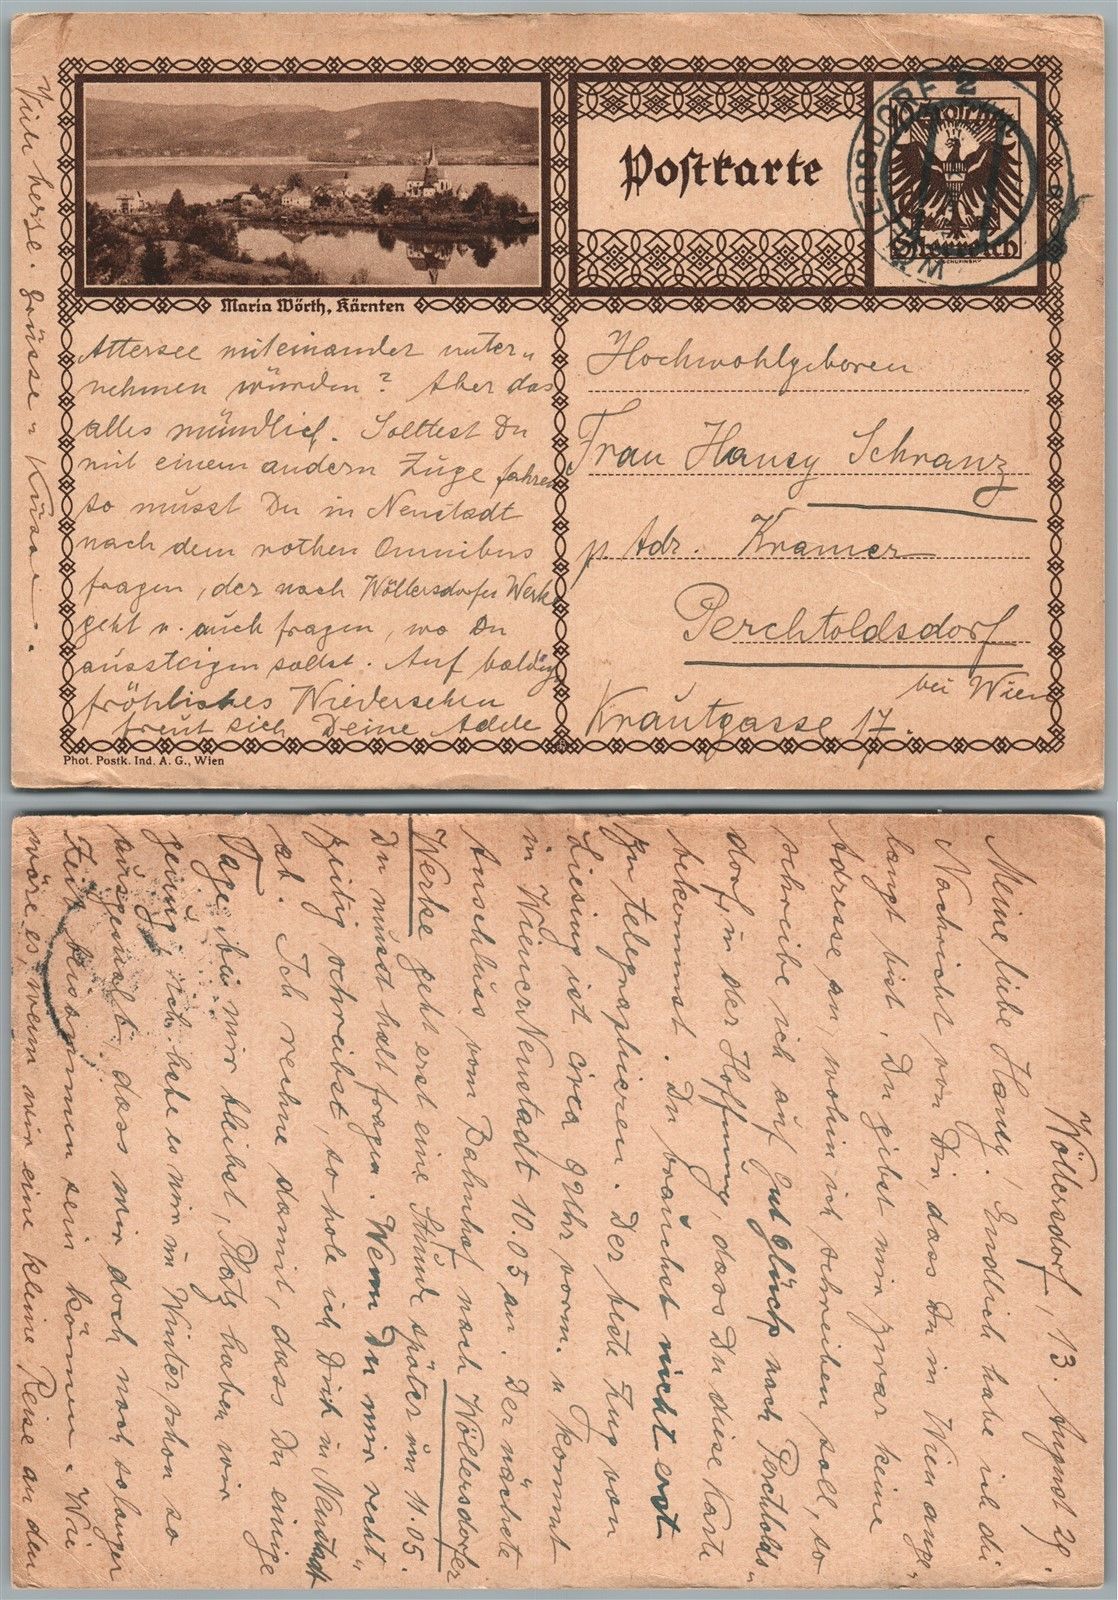 Postkarte
WÖLLERSDORF 2
Österreich
SCHUFINSKY
Maria Wörth, Kärnten
Attersee miteinander unter„
nehmen würden? Aber das
alles mündlich. Solltest Du
mit einem andern Zuge fahren
so musst Du in Neustadt
nach dem rothen Omnibus
fragen, der nach Wöllersdorfer Werke
geht u. auch fragen, wo Du
aussteigen sollst. Auf baldig
fröhliches Wiedersehen
freut sich Deine Adele
Viele herze. Grüsse u Küsse
Hochwohlgeboren
Frau Hansy Schranz
p. Adr. Kramer
Perchtoldsdorf
bei Wien
Krautgasse 17.
Phot. Postk. Ind. A. G., Wien
Wöllersdorf, 13. August 29.
Meine liebe Hansy! Endlich habe ich die
Nachricht von Dir, dass Du in Wien ange„
langt bist. Du gibst mir zwar keine
Adresse an, wohin ich schreiben soll, so
schreibe ich auf gut Glück nach Perchtolds„
dorf, in der Hoffnung, dass Du diese Karte
bekommst. Du brauchst nicht erst
zu telegraphieren. Der beste Zug von
Liesing ist circa 9 Uhr vorm. u kommt
in Wiener Neustadt 10.05 an. Der nächste
Anschluss, vom Bahnhof nach Wöllersdorfer
Werke geht erst eine Stunde später um 11.05.
Du musst halt fragen. Wenn Du mir recht„
zeitig schreibst, so hole ich Dich in Neustadt
ab. Ich rechne damit, dass Du einige
Tage bei mir bleibst, Platz haben wir
genug, ich habe es mir im Winter schon so
ausgemalt, dass wir doch noch so langer
Zeit zusammen sein können. Wie
wäre es, wenn wir eine kleine Reise an den